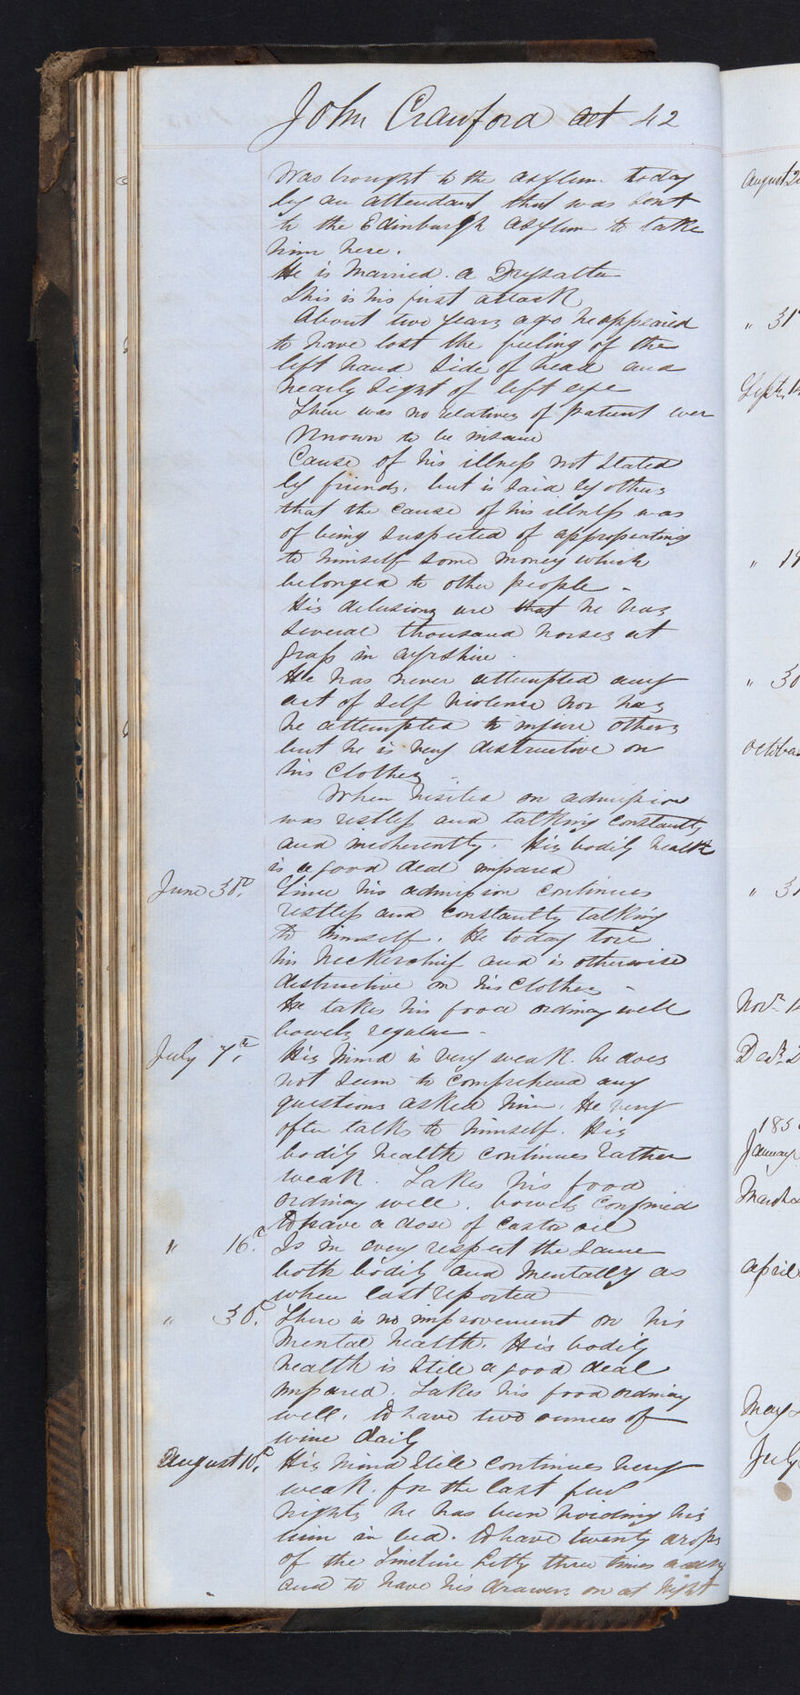 John Crawford aet 42
Was brought to the asylum today
by an attendant that was sent
to the Edinburgh asylum to take
him here.
He is Married. a Drysalter
This is his first attack
About two years ago he appeared
to have lost the feeling of the
left hand side of head and
nearly sight of left eye
There was no relatives of patient ever
known to be insane
Cause of his illness not stated
by friends. but is said by others
that the cause of his illness was
of being suspected of appropeating
to himself some money which
belonged to other people -
His delusions are that he has
several thousand horses at
grass in ayrshire.
He has never attempted any
act of self violence nor has
he attempted to injure others
but he is very destructive on
his clothes
When visited on admission
was restless and talking constantly
and incoherently. His bodily health
is a good deal impared
June 30th. Since his admission continues
restless and constantly talking
to himself. He today tore
his neckerchief and is otherwise
destructive on his clothes -
He takes his food ordinay well
bowels regular -
July 7th. His mind is very weak. he does
not seem to comprehend any
questions asked him. He very
often talks to himself. His
bodily health continues rather
weak. Takes his food
ordinay well. bowels confined
To have a dose of castor oil
" 16th. Is in every respect the same
both bodily and mentally as
when last reported
" 30th. There is no improvement on his
mental health. His bodily
health is still a good deal
impared. Takes his food ordinay
well. To have two ounces of
wine daily
August 10th. His mind still continues very
weak. for the last few
nights he has been voiding his
urin in bed. To have twenty drops
of the three times a day
and to have his drawers on at night
August 2
" 31
Sept. 1
" 19
" 30
October
" 31
Novr. 1
Decr. 2
185
January
March
april
May
July